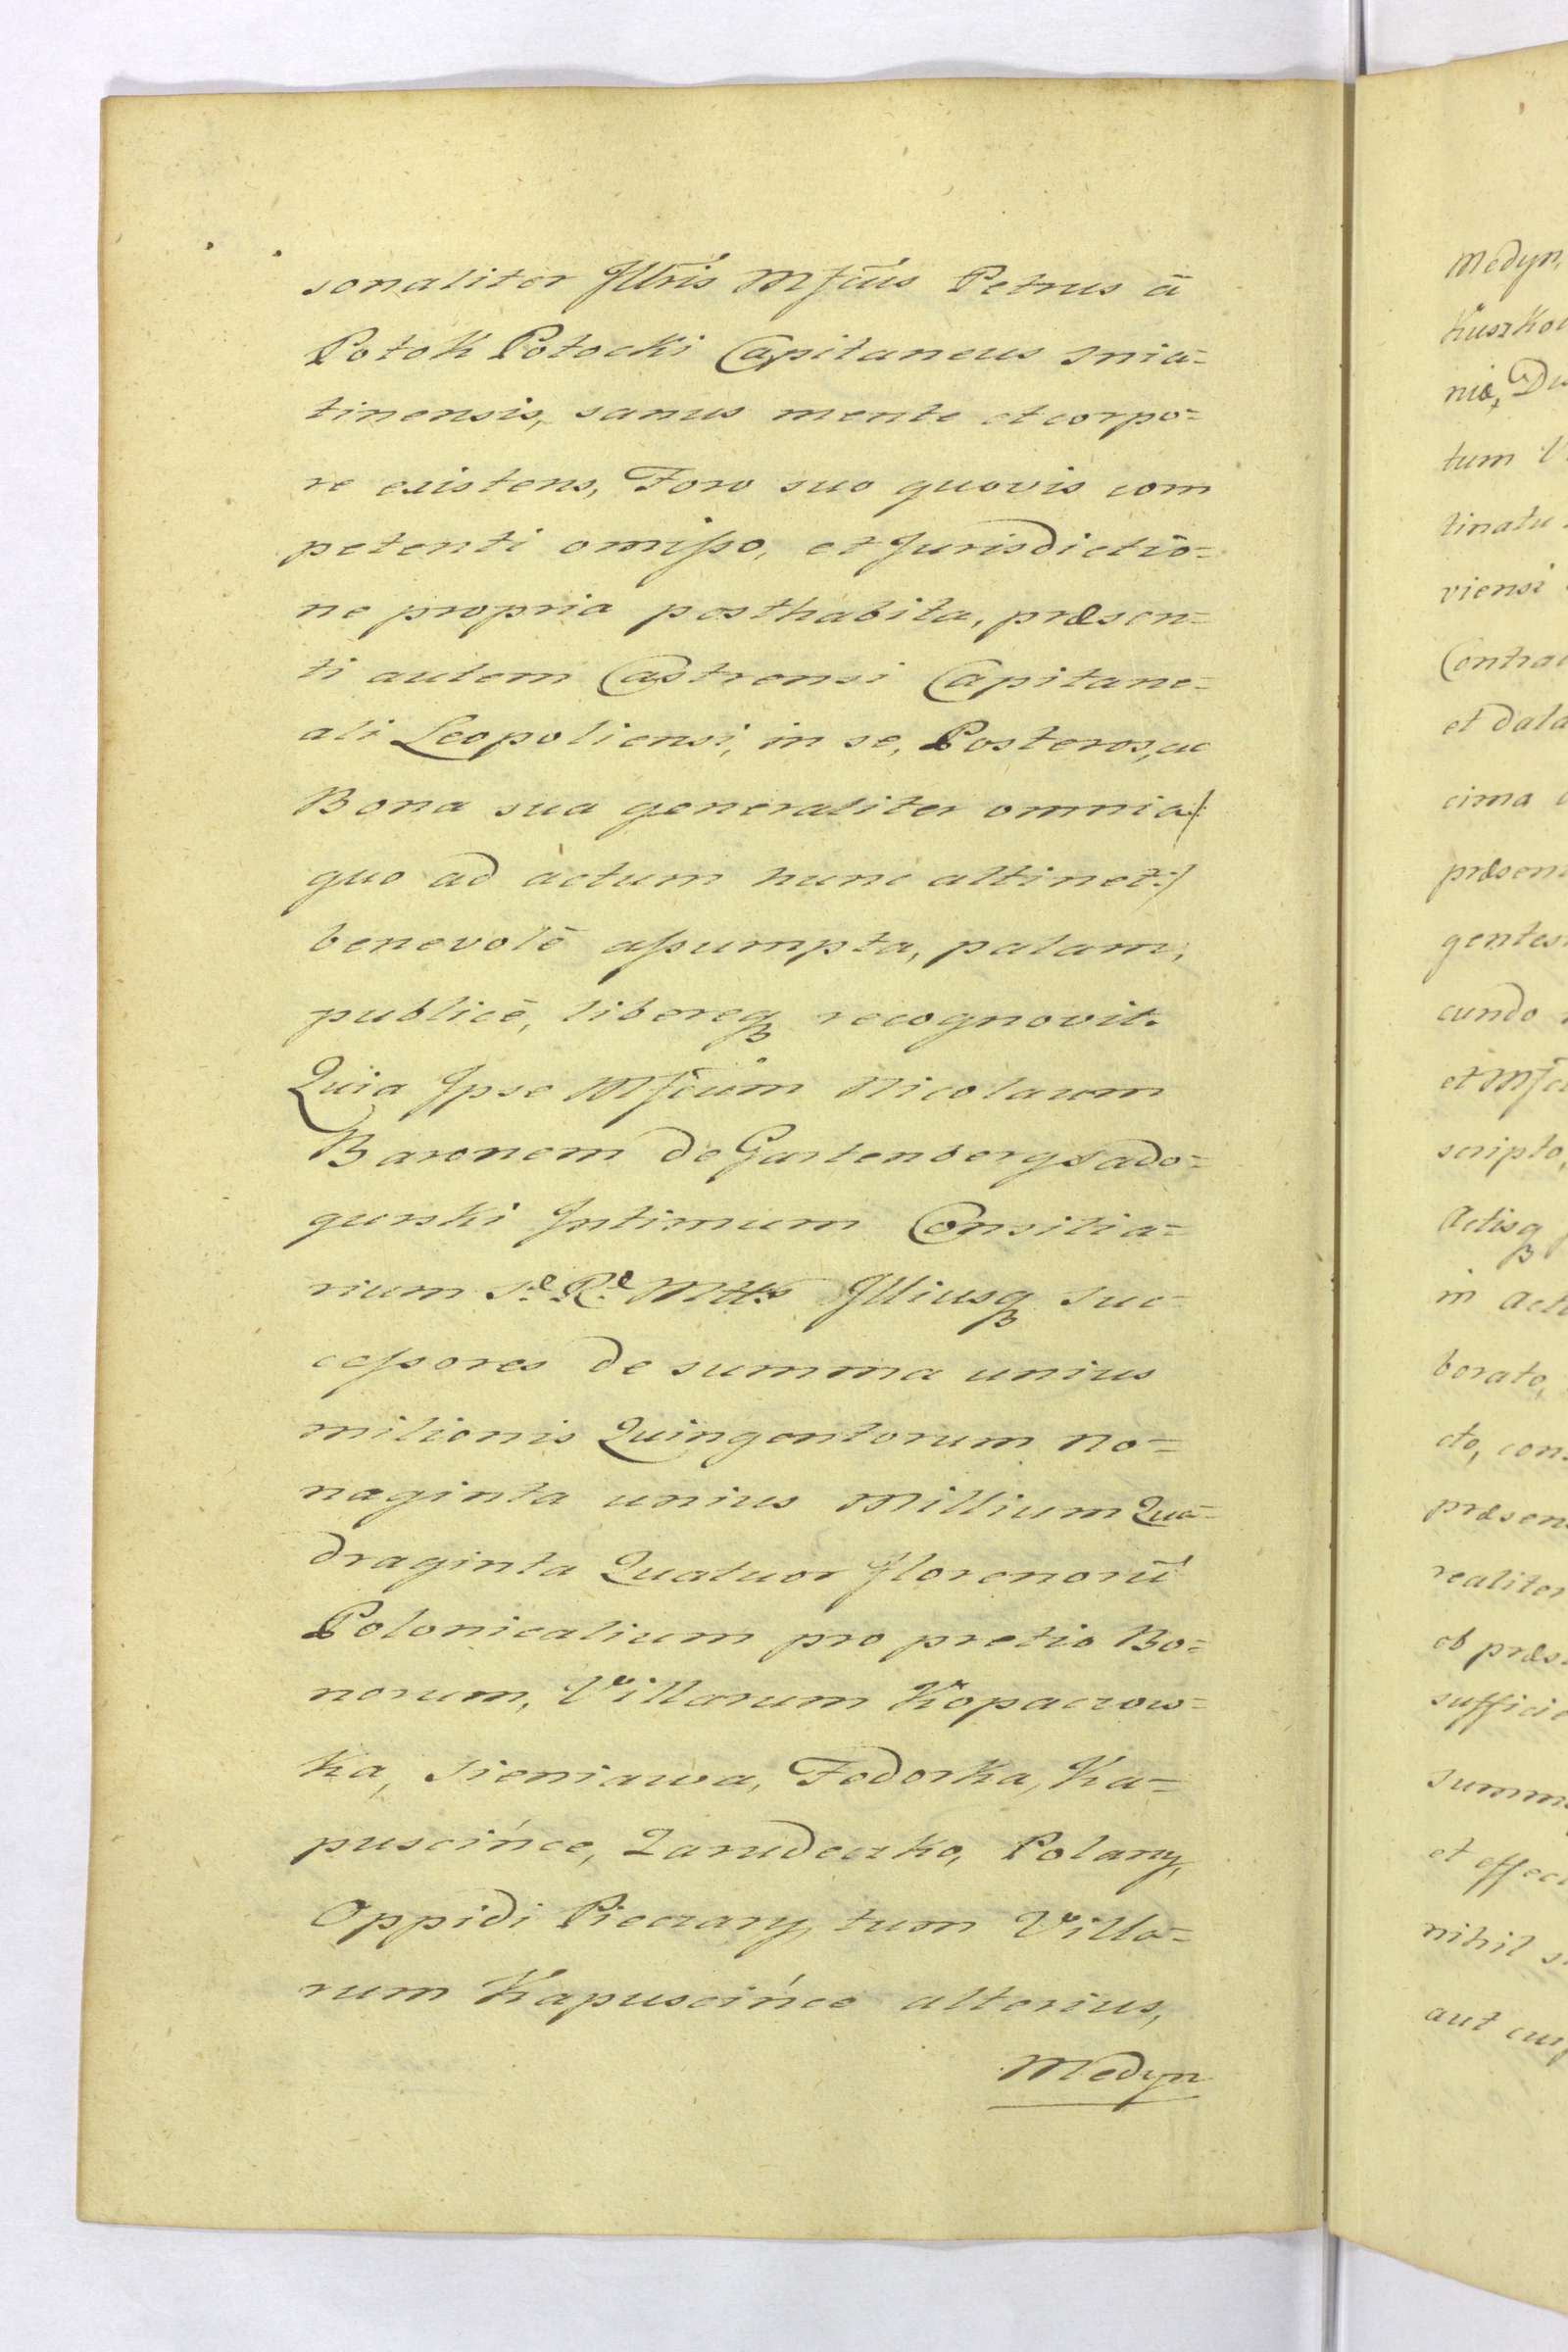 sonaliter Jllris Mfcus Petrus à
Potok Potocki Capitaneus Snia=
tinensis, sanus mente et corpo=
re existens, Foro suo quovis com
petenti omisso, et Jurisdictio=
ne propria posthabita, præsen=
ti autem Castrensi Capitane=
ali Leopoliensi, in se, Posteros, ac
Bona sua generaliter omnia /:
quo ad actum hunc attinet :/
benevolè assumpta, palam,
publicè, libereq recognovit.
Quia Jpse Mfcum Nicolaum
Baronem de Gartenberg Sado=
gurski Jntimum Consilia=
rium S.æ R.æ Mttis Jlliusq Suc=
cessores de summa unius
milionis Quingentorum No=
naginta unius Millium Qua=
draginta Quatuor Florenorū
Polonicalium pro pretio Bo=
norum, Villarum Kopaczow=
ka, Sieniawa, Fedorka, Ka=
puscińce, Zarudeczko, Polany,
Oppidi Pieczary, tum Villa=
rum Kapuscińce alterius,
Medyn
Medyn,
tum
viensi
et data
cima
gentes
cundo
et Mfc
scripto,
Actisq
in Act
borato,
realiter
nihil
aut